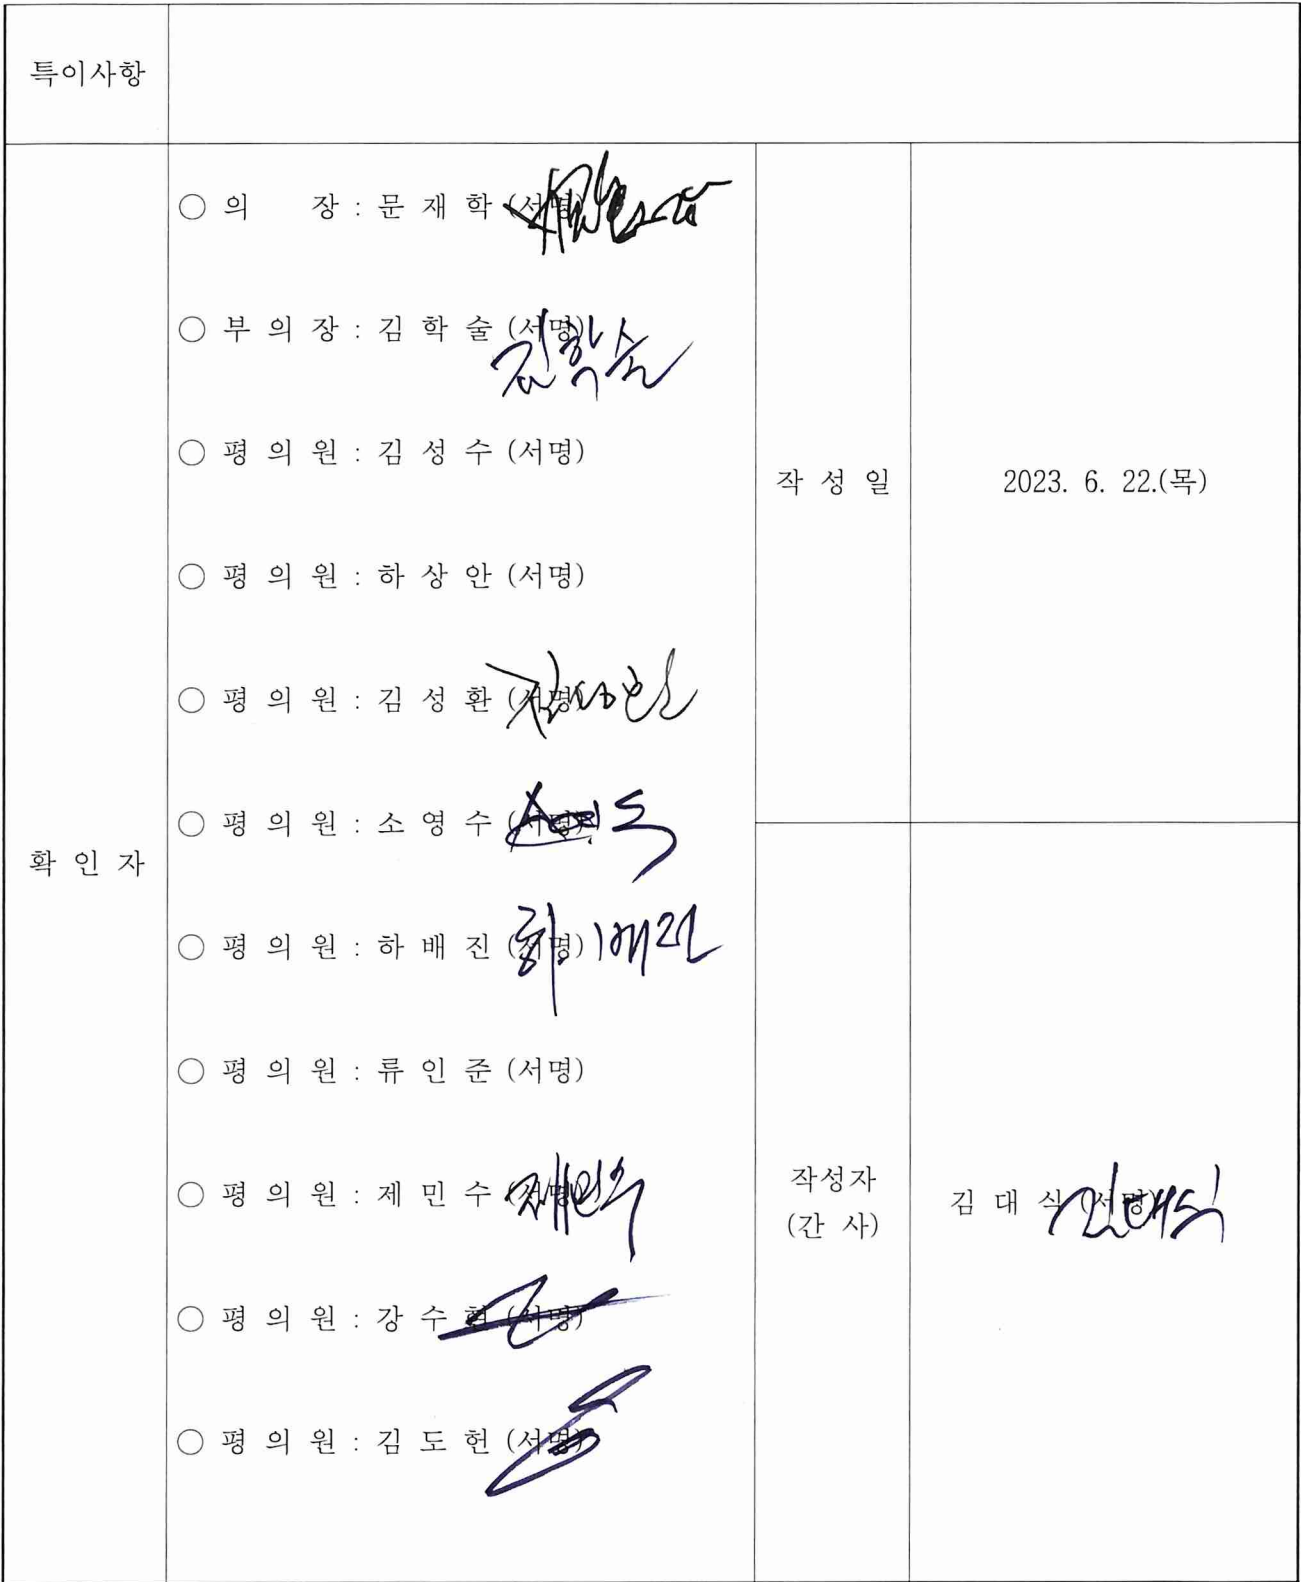 특이사항
확 인 자
○ 의 장 : 문 재 학 (서명)
○ 부 의 장 : 김 학 술 (서명)
김학술
○ 평 의 원 : 김 성 수 (서명)
○ 평 의 원 : 하 상 안 (서명)
○ 평 의 원 : 김 성 환 (서명)
○ 평 의 원 : 소 영 수 (서명)
○ 평 의 원 : 하 배 진 (서명) 하배진
○ 평 의 원 : 류 인 준 (서명)
○ 평 의 원 : 제 민 수 (서명) 제민수
○ 평 의 원 : 강 수 현 (서명)
○ 평 의 원 : 김 도 헌 (서명)
작 성 일
2023. 6. 22.(목)
작성자
(간 사)
김 대 식 (서명) 김대식